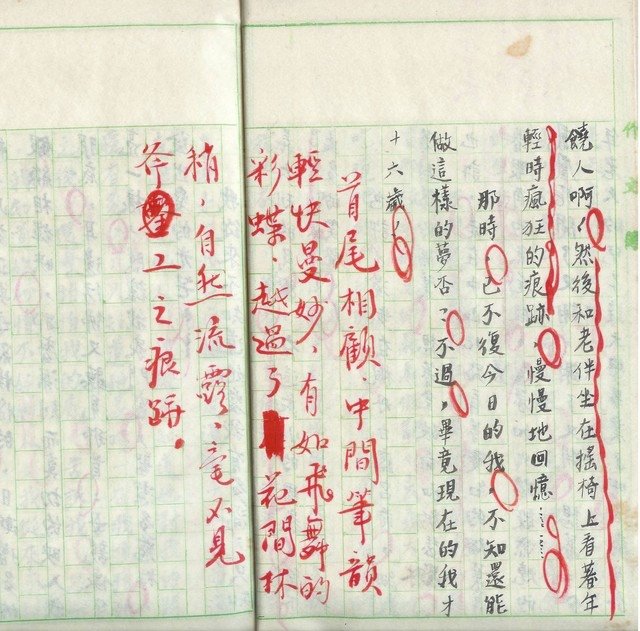 饒人啊!然後和老伴坐在搖椅上看著年
輕時瘋狂的痕跡,慢慢地回憶……
那時,已不復今日的我,不知還能
做這樣的夢否?不過,畢竟現在的我才
十六歲!
首尾相顧、中間筆韻
輕快曼妙、有如飛舞的
彩蝶、越過了花間林
稍,自然流露、毫不見
斧工之痕跡。